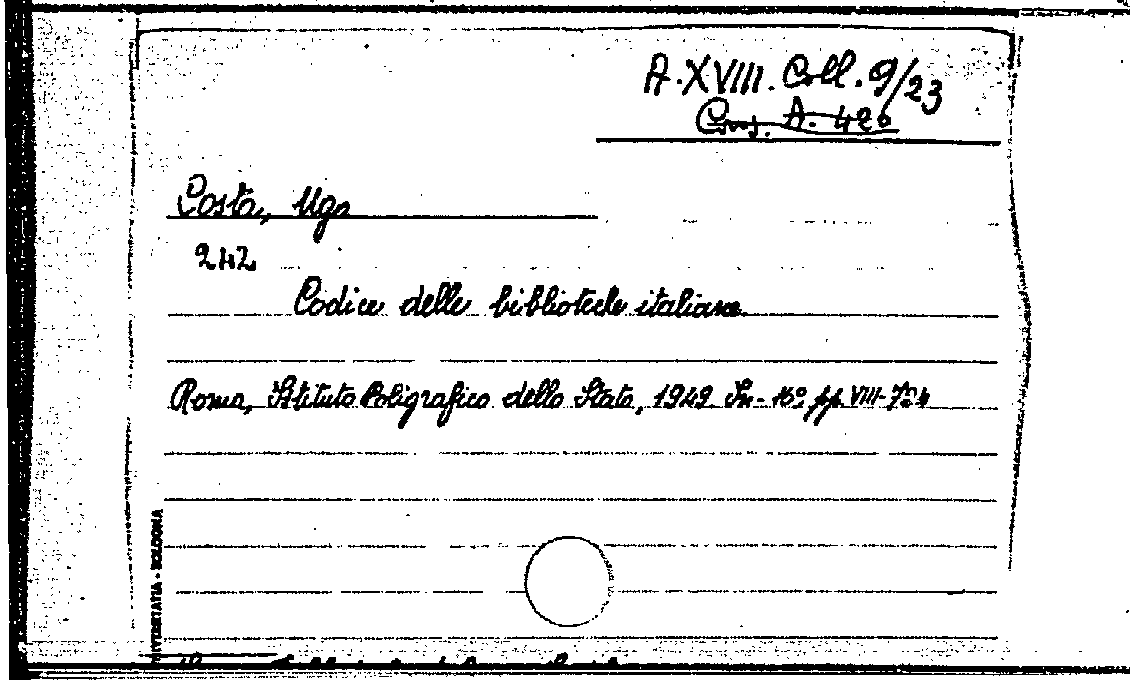 A. XVIII. Coll. 9/23
Cons. A. 426
Costa, Ugo
242
Codice delle biblioteche italiane.
Roma, Istituto Poligrafico dello Stato, 1949 In-16° pp. VIII-724
BOLOGNA